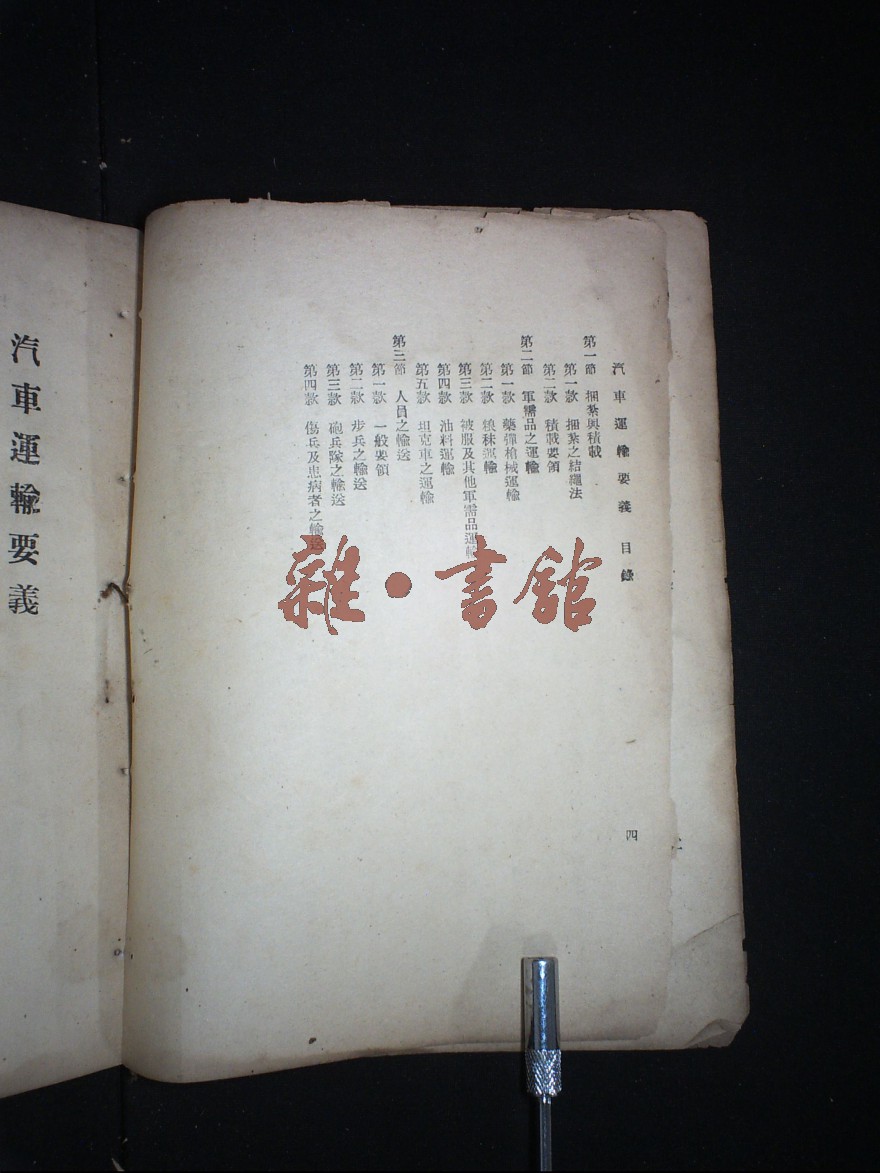 汽車運輸要義 目錄
第一節 捆紮與積載
第一款 捆紮之結繩法
第二款 積載要領
第二節 軍需品之運輸
第一款 藥彈槍械運輸
第二款 粮秣運輸
第三款 被服及其他軍需品運輸
第四款 油料運輸
第五款 坦克車之運輸
第三節 人員之輸送
第一款 一般要領
第二款 步兵之輸送
第三款 砲兵隊之輸送
第四款 傷兵及患病者之輸送
四
汽車運輸要義
雜·書館